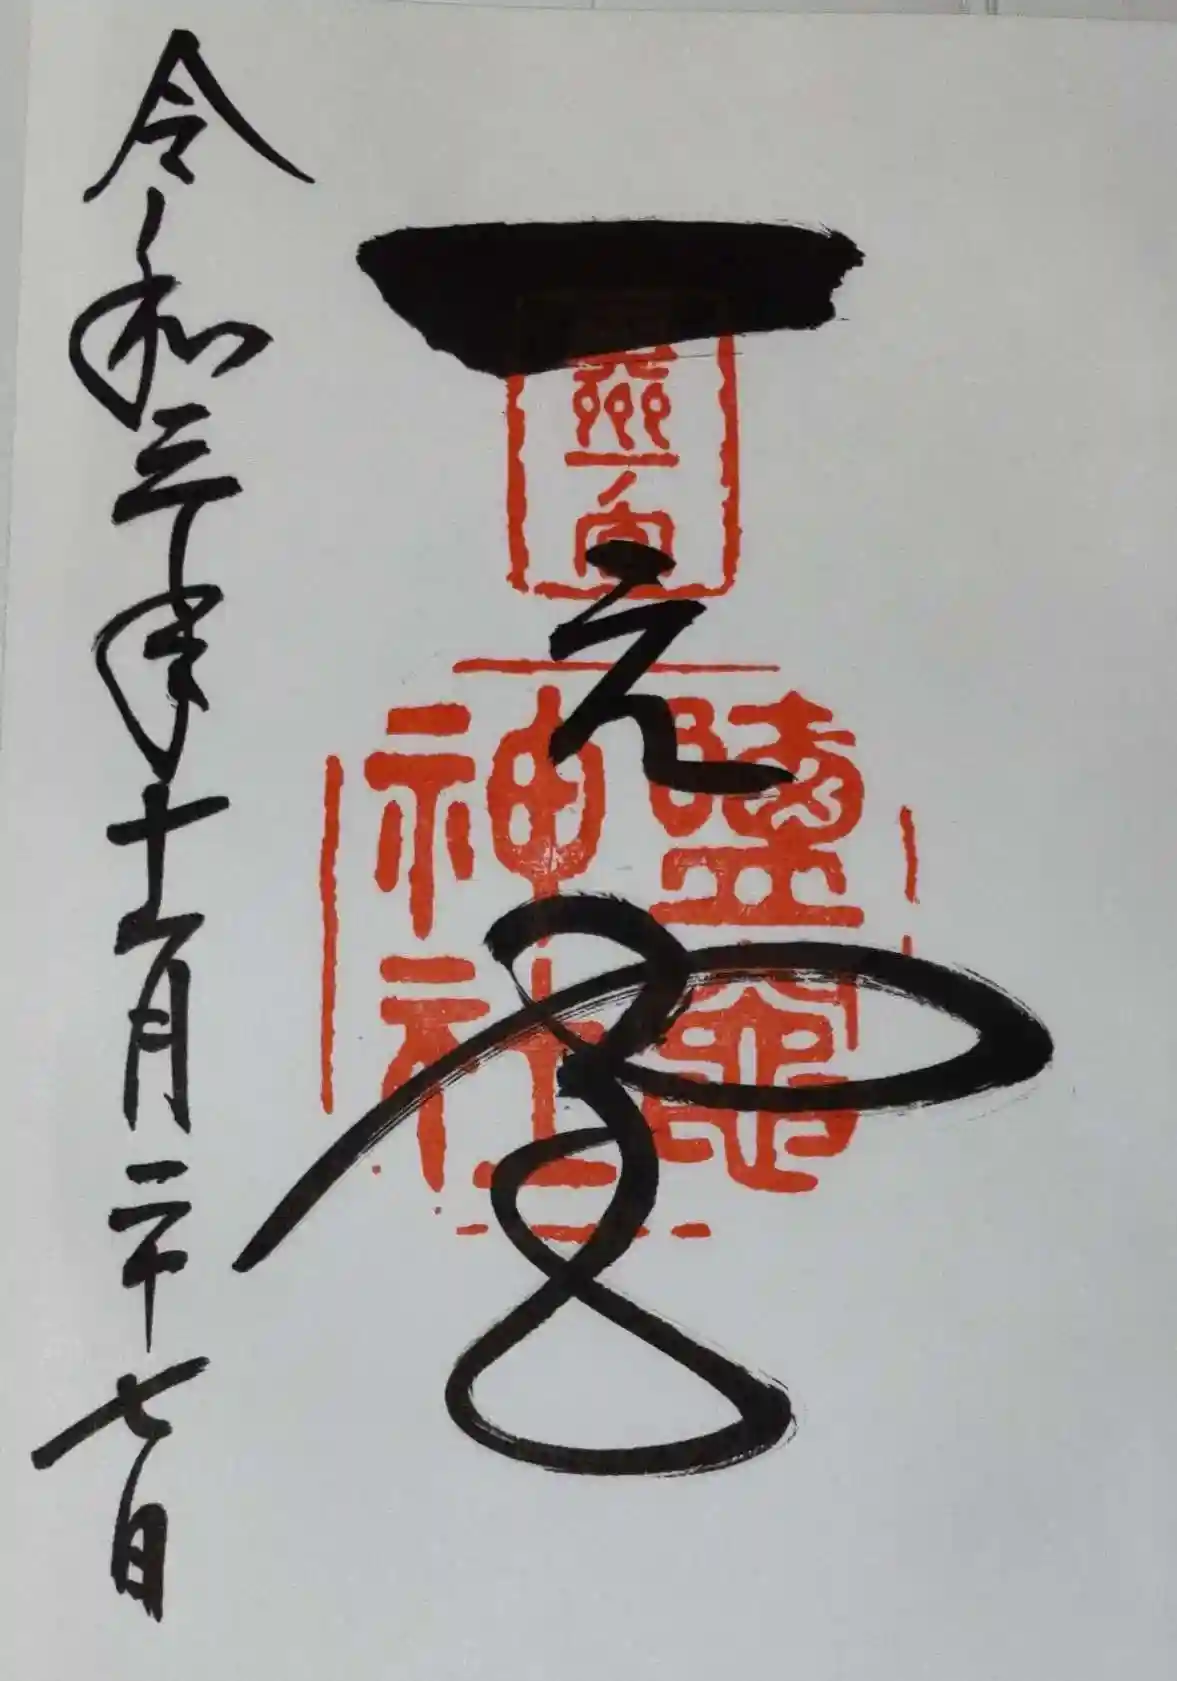 一之宮
鹽竈
神社
令和三年十一月二十七日